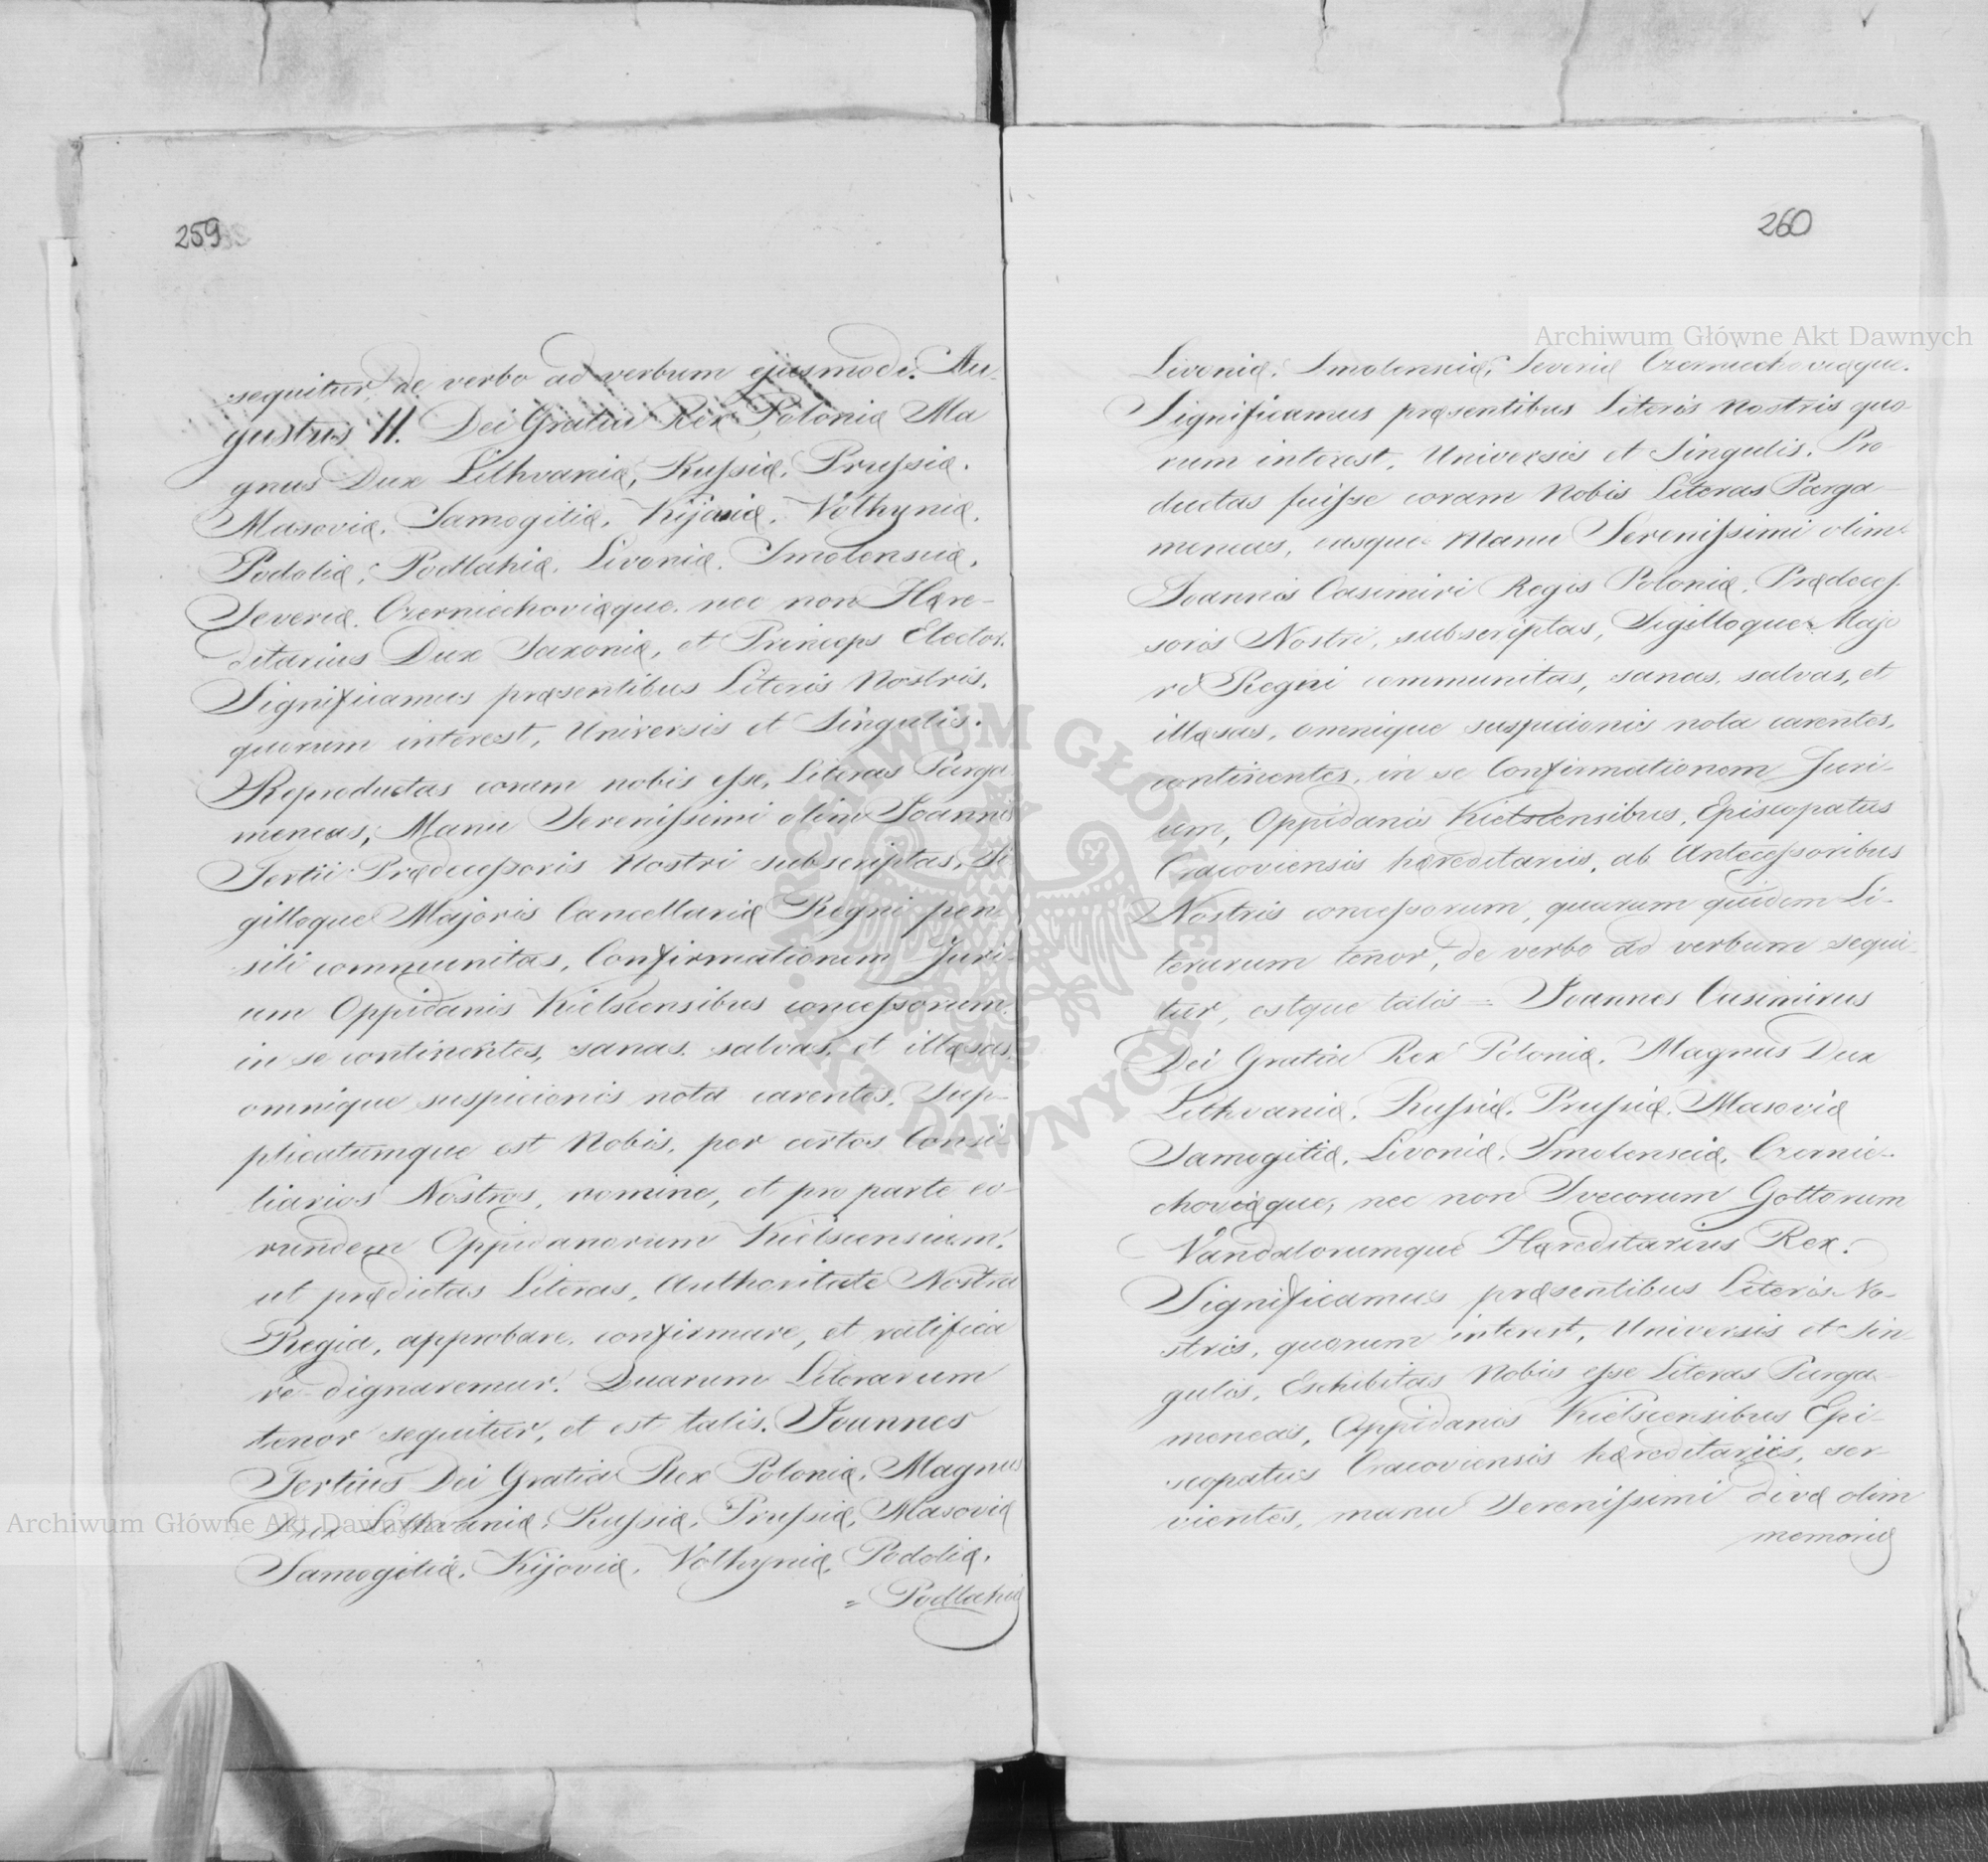 259
sequitur de verbo ad verbum ejusmodi. Au-
gustus II. Dei Gratia Rex Poloniæ Ma
gnus Dux Lithvaniæ, Rufsiæ, Prufsiæ.
Masoviæ. Samogitiæ, Kijoviæ, Volhyniæ.
Podoliæ, Podlahiæ. Livoniæ. Smolensciæ,
Severiæ. Czerniechoviæque. nec non Hære-
ditarius Dux Saxoniæ, et Princeps Elector.
Significamus præsentibus Literis Nostris,
quorum interest, Universis et Singulis.
Reproductas coram nobis efse, Literas Parga
meneas, Manu Serenifsimi olim Joannis
Tertii Prædecefsoris Nostri subscriptas, Si
gilloque Majoris Cancellariæ Regni pen
sili communitas, Confirmationem Juri-
um Oppidanis Kielscensibus concefsorum
in se continentes, sanas, salvas, et illæsas,
omnique suspicionis nota carentes, Sup-
plicatumque est Nobis, per certos Consi-
liarios Nostros, nomine, et pro parte eo-
rundem Oppidanorum Kielscensium,
ut prædictas Literas, Authoritate Nostra
Regia, approbare, confirmare, et ratifica
re dignaremur. Quarum Literarum
tenor sequitur, et est talis. Joannes
Tertius Dei Gratia Rex Poloniæ, Magnus
Dux Lithvaniæ, Rufsiæ, Prufsiæ, Masoviæ
Samogitiæ, Kijoviæ, Volhyniæ, Podoliæ.
= Podlahiæ
260
Livoniæ, Smolensciæ, Severiæ Czerniechoviæque.
Significamus præsentibus Literis nostris quo-
rum interest, Universis et Singulis. Pro
ductas fuifse coram Nobis Literas Parga-
meneas, easque Manu Serenifsimi olim
Joannis Casimiri Regis Poloniæ, Prædecef-
soris Nostri, subscriptas, Sigilloque Majo
ri Regni communitas, sanas, salvas, et
illæsas, omnique suspicionis nota carentes,
continentes, in se Confirmationem Juri-
um, Oppidanis Kielscensibus, Episcopatus
Cracoviensis hæreditariis, ab Antecefsoribus
Nostris concefsorum, quarum quidem Li-
terarum tenor, de verbo ad verbum sequi-
tur, estque talis = Joannes Casimirus
Dei Gratia Rex Poloniæ, Magnus Dux
Lithvaniæ, Rufsiæ, Prufsiæ, Masoviæ
Samogitiæ, Livoniæ, Smolensciæ, Czernie-
choviæque, nec non Svecorum Gottorum
Vandalorumque Hæreditarius Rex.
Significamus præsentibus Literis No-
stris, quorum interest, Universis et Sin-
gulis, Exhibitas Nobis efse Literas Parga-
meneas, Oppidanis Kielscensibus Epi-
scopatus Cracoviensis hæreditariis, ser-
vientes, manu Serenifsimi divæ olim
memoriæ
Archiwum Główne Akt Dawnych
Archiwum Główne Akt Dawnych
ARCHIWUM GŁÓWNE · AKT DAWNYCH ·